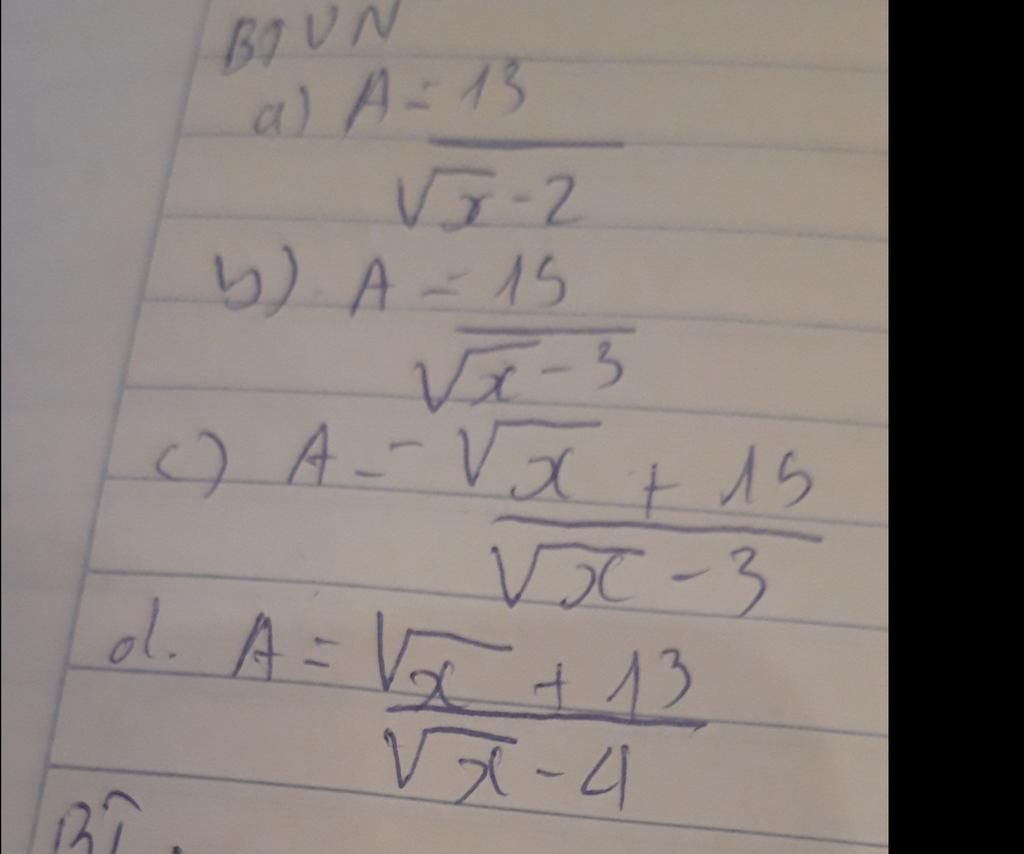 BTVN
a) A = 13
√x - 2
b) A = 15
√x - 3
c) A = -√x + 15
√x - 3
d. A = √x + 13
√x - 4
BT